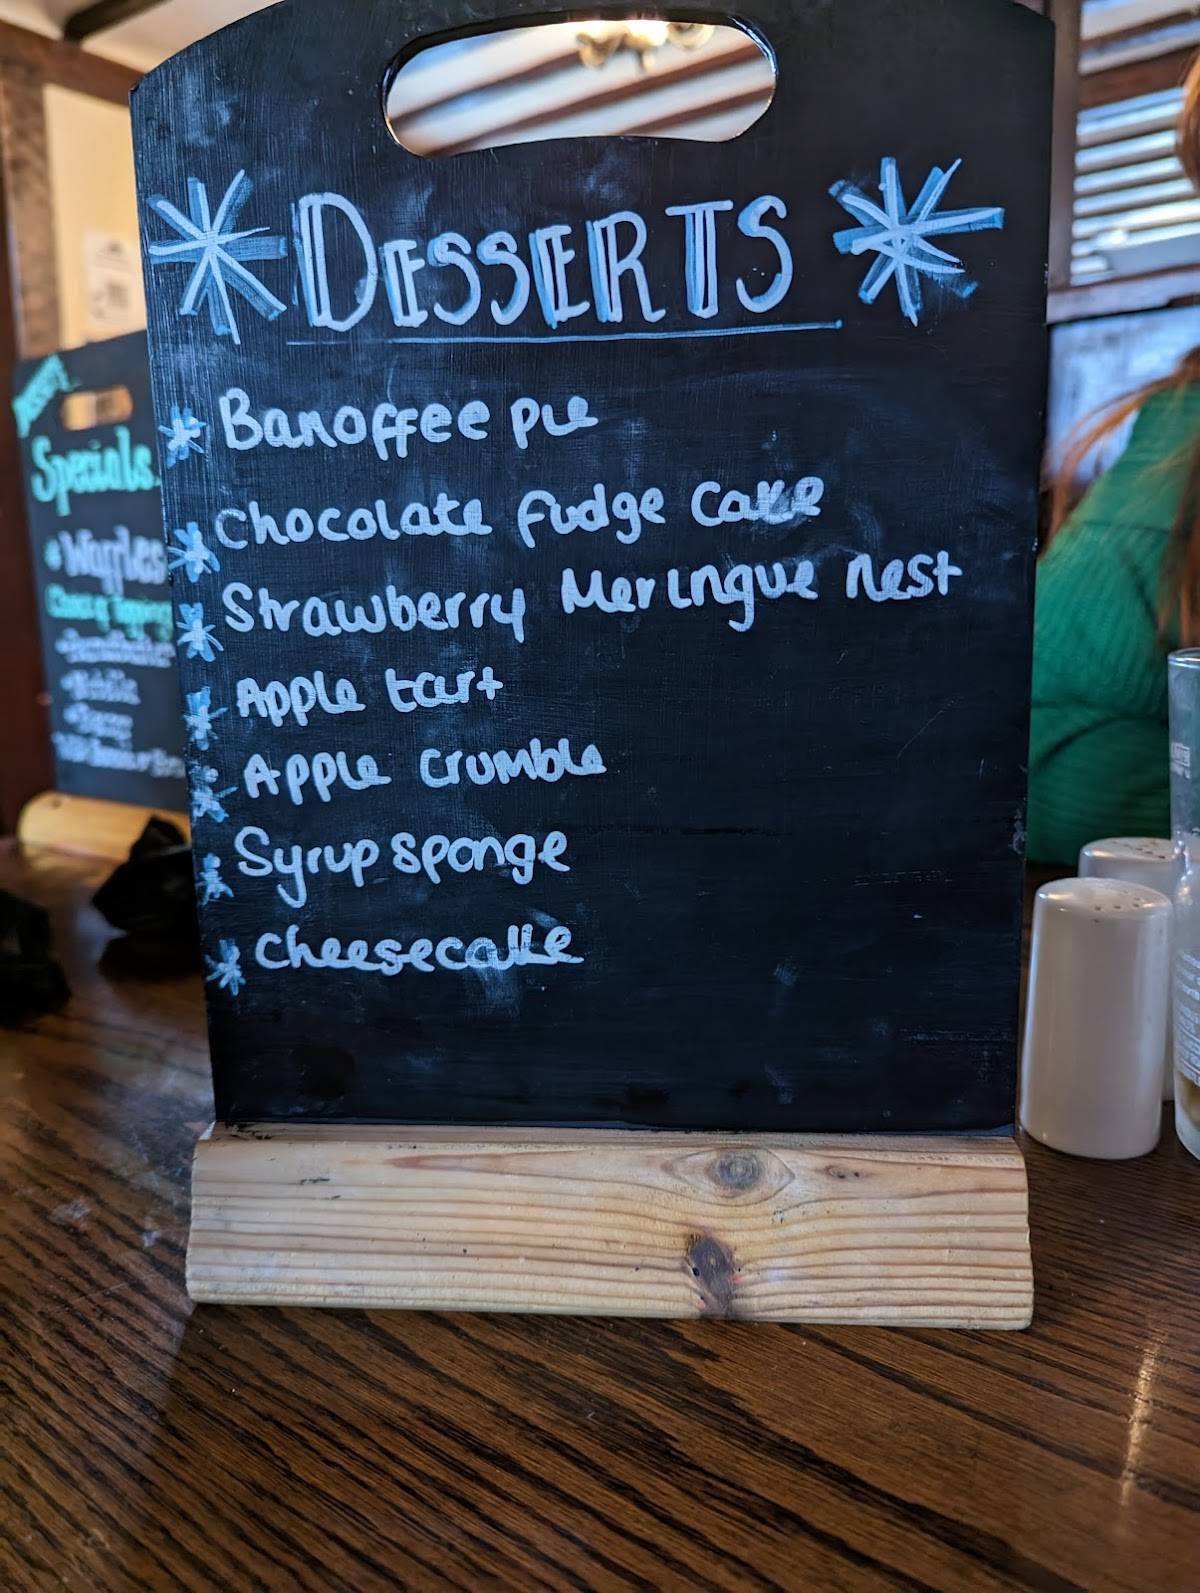 DESSERTS
Banoffee pie
Chocolate fudge cake
Strawberry Meringue nest
Apple tart
Apple crumble
Syrup sponge
Cheesecake
Specials
Waffles